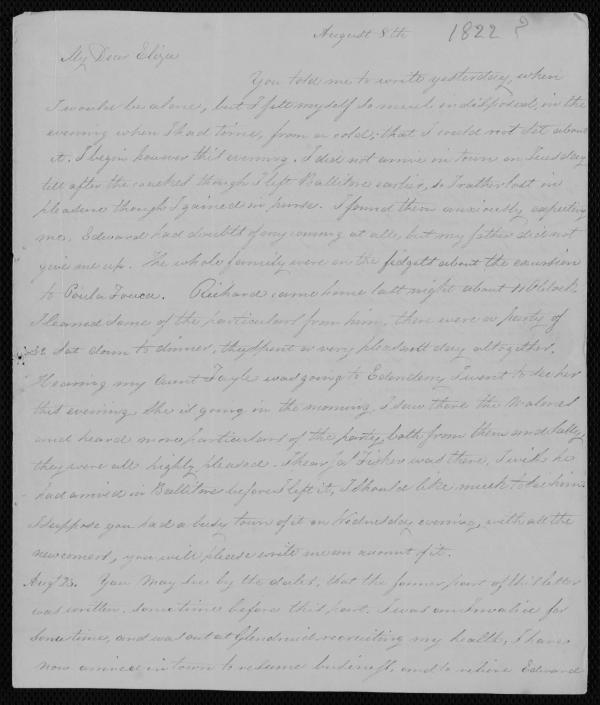 August 8th 1822 ?
My Dear Eliza
You told me to write yesterday, when
I would be alone, but I felt myself so much indisposed, in the
evening when I had time, from a cold, that I could not set about
it. I begin however this evening. I did not arrive in town on Tuesday
till after the coaches though I left Ballitore earlier, so I rather lost in
pleasure though I gained in purse. I found them anxiously expecting
me. Edward had doubts of my coming at all, but my father did not
give me up. The whole family were on the fidgets about the excursion
to Poula Fouca. Richard came home last night about 11 O'Clock
I learned some of the particulars from him, there were a party of
sat down to dinner, they spent a very pleasant day altogether.
Hearing my Aunt Fayle was going to Edenderry I went to see her
this evening she is going in the morning, I saw there the
and heard more particulars of the party, both from them and
they were all highly pleased. I hear Ja' Fisher was there, I wish he
had arrived in Ballitore before I left it, I should like much to see him.
I suppose you had a busy town of it on Wednesday evening, with all the
newcomers, you will please write me an account of it.
Aug' 23. You may see by the dates, that the former part of this letter
was written sometime before this part. I was an Invalid for
some time, and was out at Glendruid recruiting my health, I have
now arrived in town to resume business, and to relieve Edward